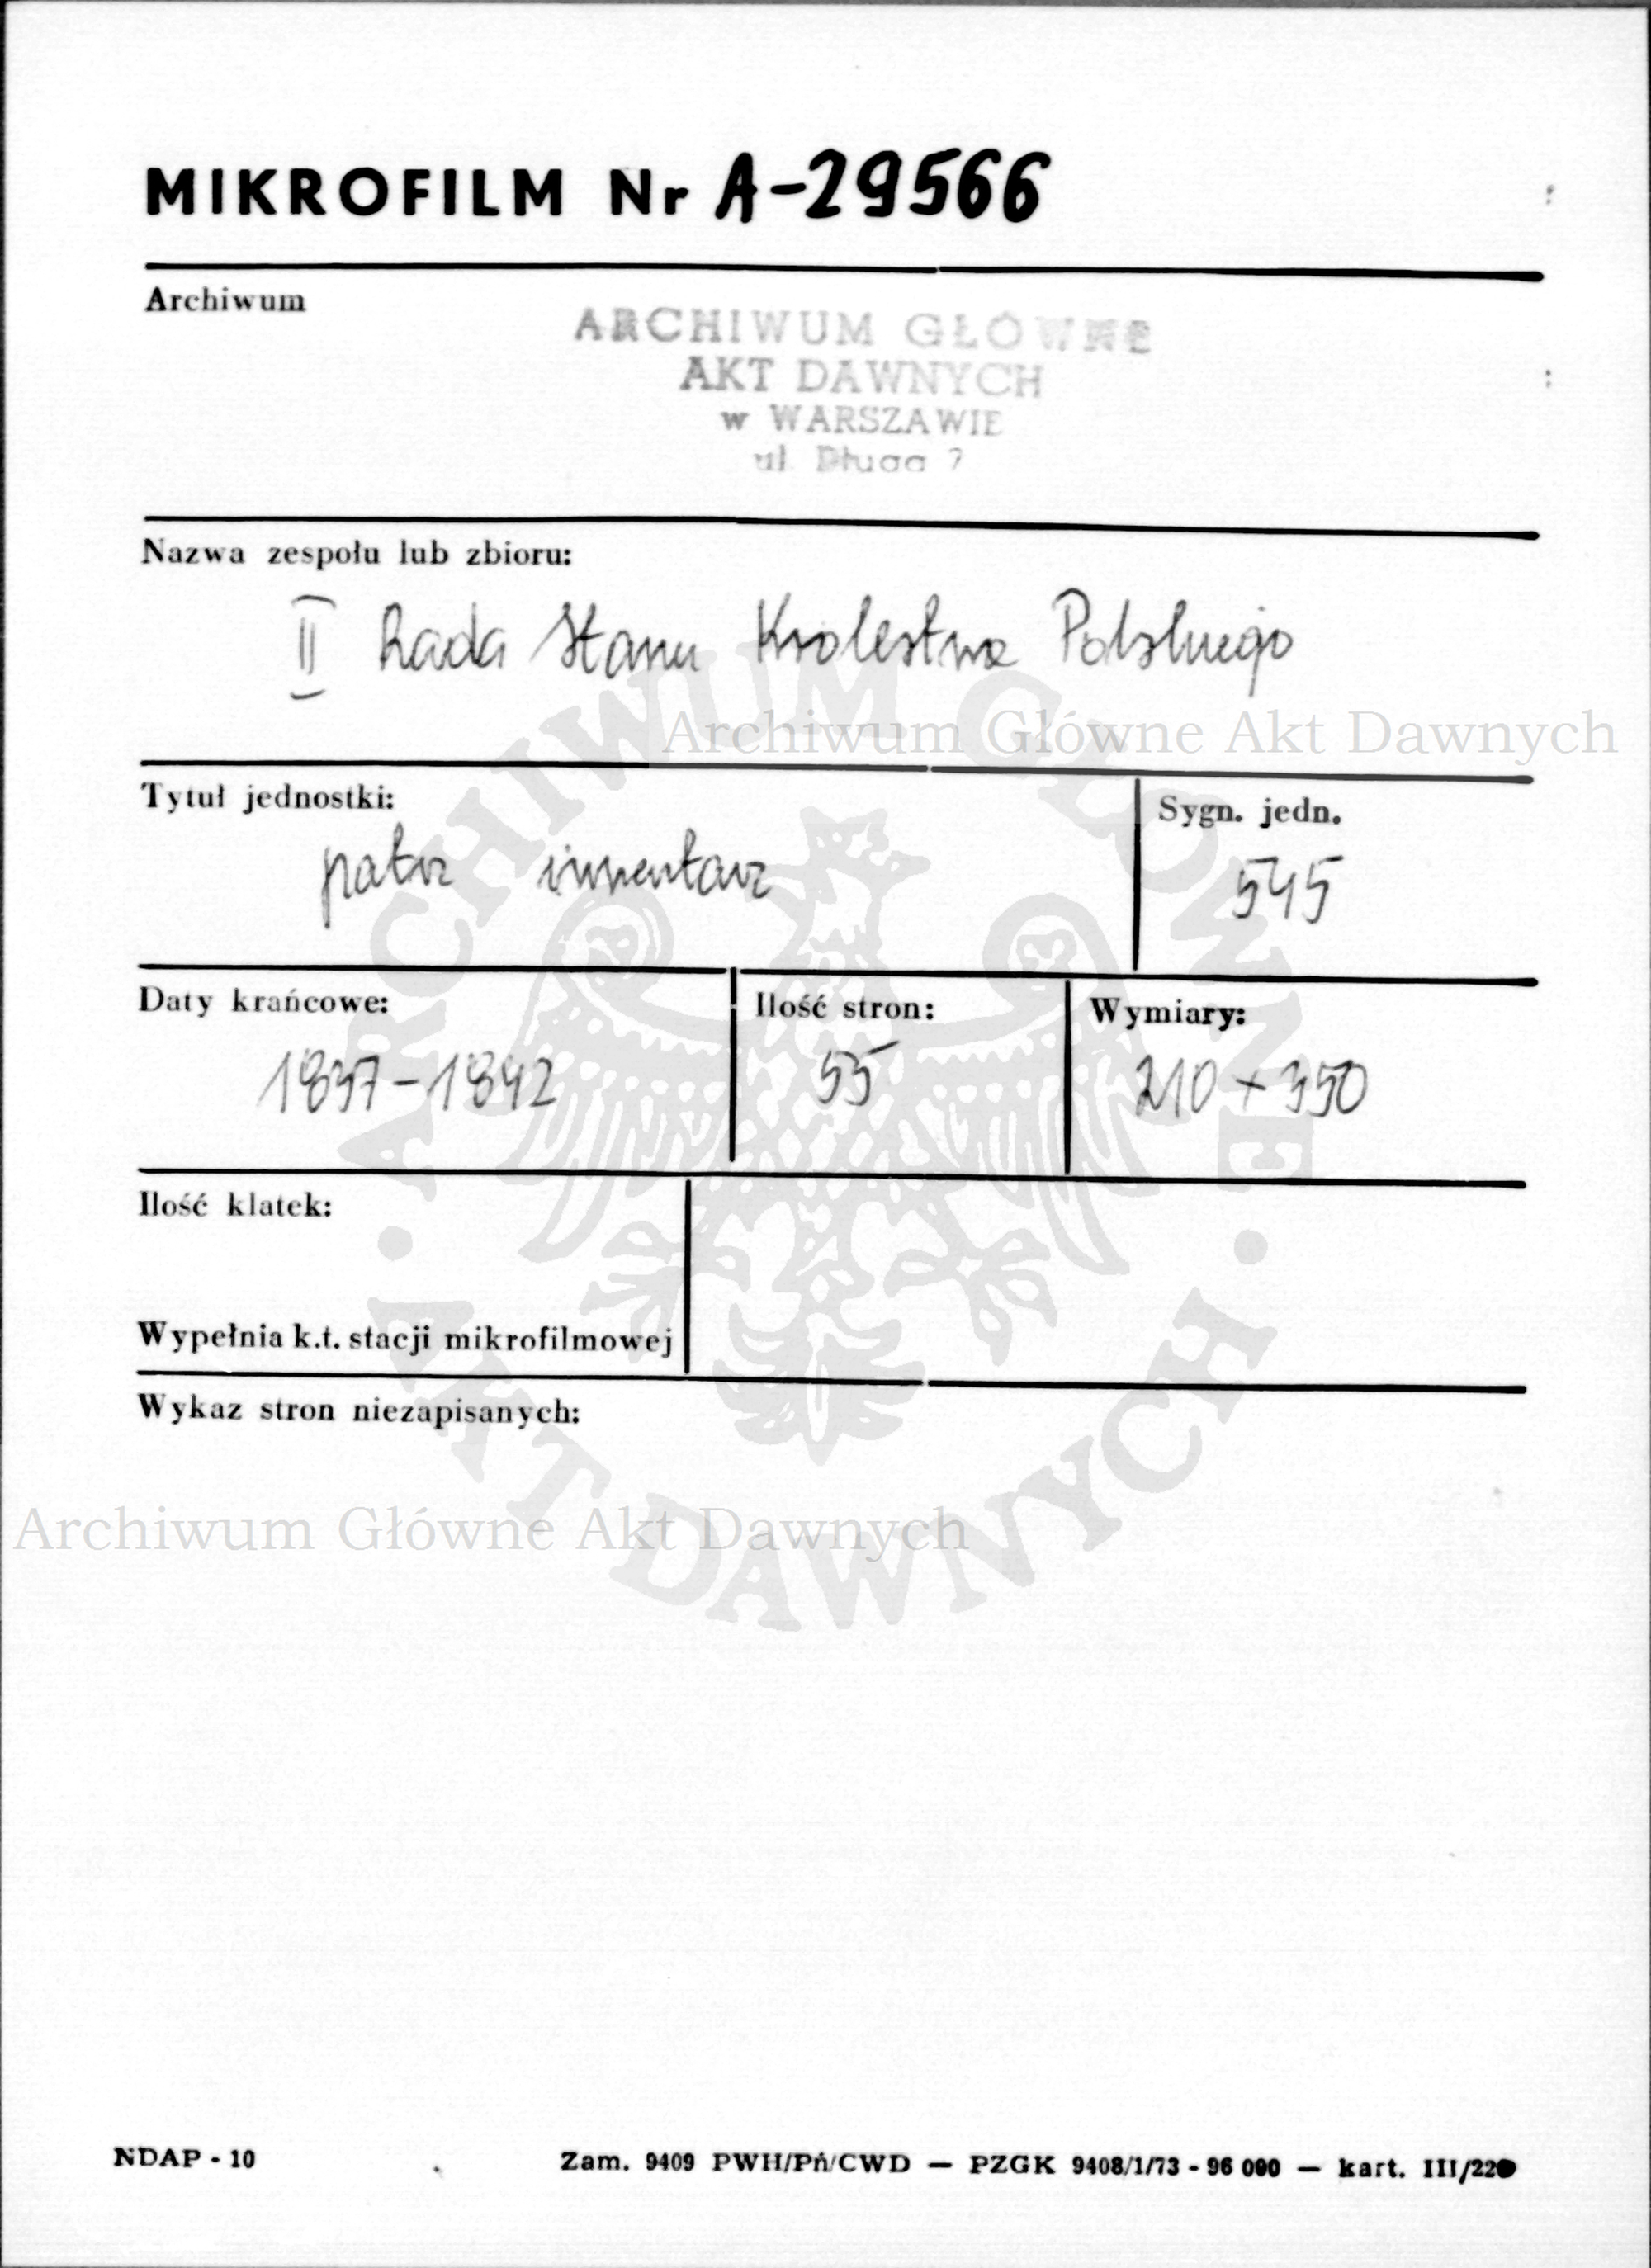 MIKROFILM Nr A-29566
Archiwum
ARCHIWUM GŁÓWNE
AKT DAWNYCH
w WARSZAWIE
ul. Długa 7
Nazwa zespołu lub zbioru:
II Rada Stanu Krolestwa Polskiego
Archiwum Główne Akt Dawnych
Tytuł jednostki:
patrz inwentarz
Sygn. jedn.
545
Daty krańcowe:
1837-1842
Ilość stron:
55
Wymiary:
210 x 350
Ilość klatek:
Wypełnia k.t. stacji mikrofilmowej
Wykaz stron niezapisanych:
Archiwum Główne Akt Dawnych
ARCHIWUM GŁÓWNE
· AKT DAWNYCH ·
NDAP - 10
Zam. 9409 PWH/Pń/CWD — PZGK 9408/1/73 - 96 000 — kart. III/220